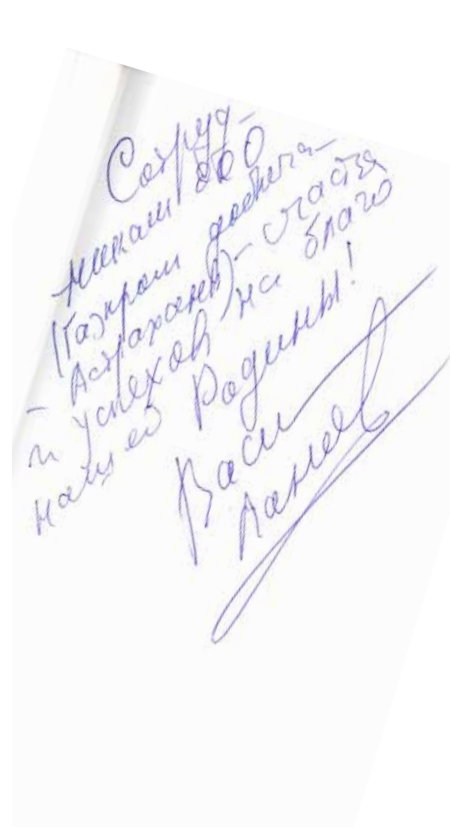 Сотруд-
никам ООО
(Газпром добыча-
Астрахань) - счастья
и успехов на благо
нашей Родины!
Васи
Ланове